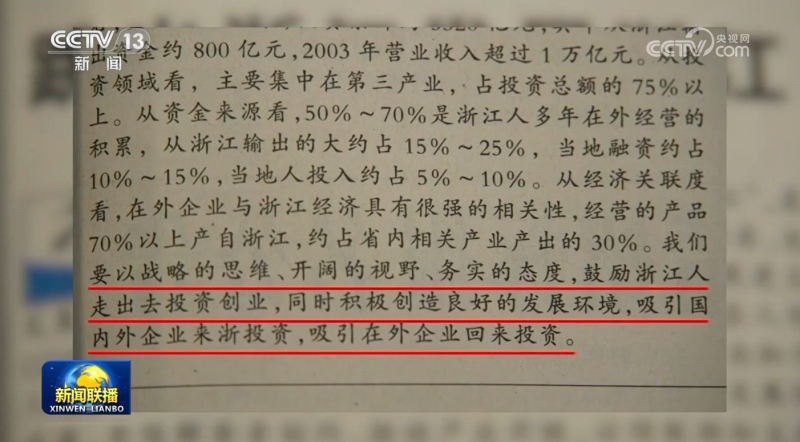 CCTV 13
新闻
央视网
CCTV.com
出资金约800亿元,2003年营业收入超过1万亿元。从投
资领域看,主要集中在第三产业,占投资总额的75%以
上。从资金来源看,50%~70%是浙江人多年在外经营的
积累,从浙江输出的大约占15%~25%,当地融资约占
10%~15%,当地人投入约占5%~10%。从经济关联度
看,在外企业与浙江经济具有很强的相关性,经营的产品
70%以上产自浙江,约占省内相关产业产出的30%。我们
要以战略的思维、开阔的视野、务实的态度,鼓励浙江人
走出去投资创业,同时积极创造良好的发展环境,吸引国
内外企业来浙投资,吸引在外企业回来投资。
新闻联播
XINWEN LIANBO